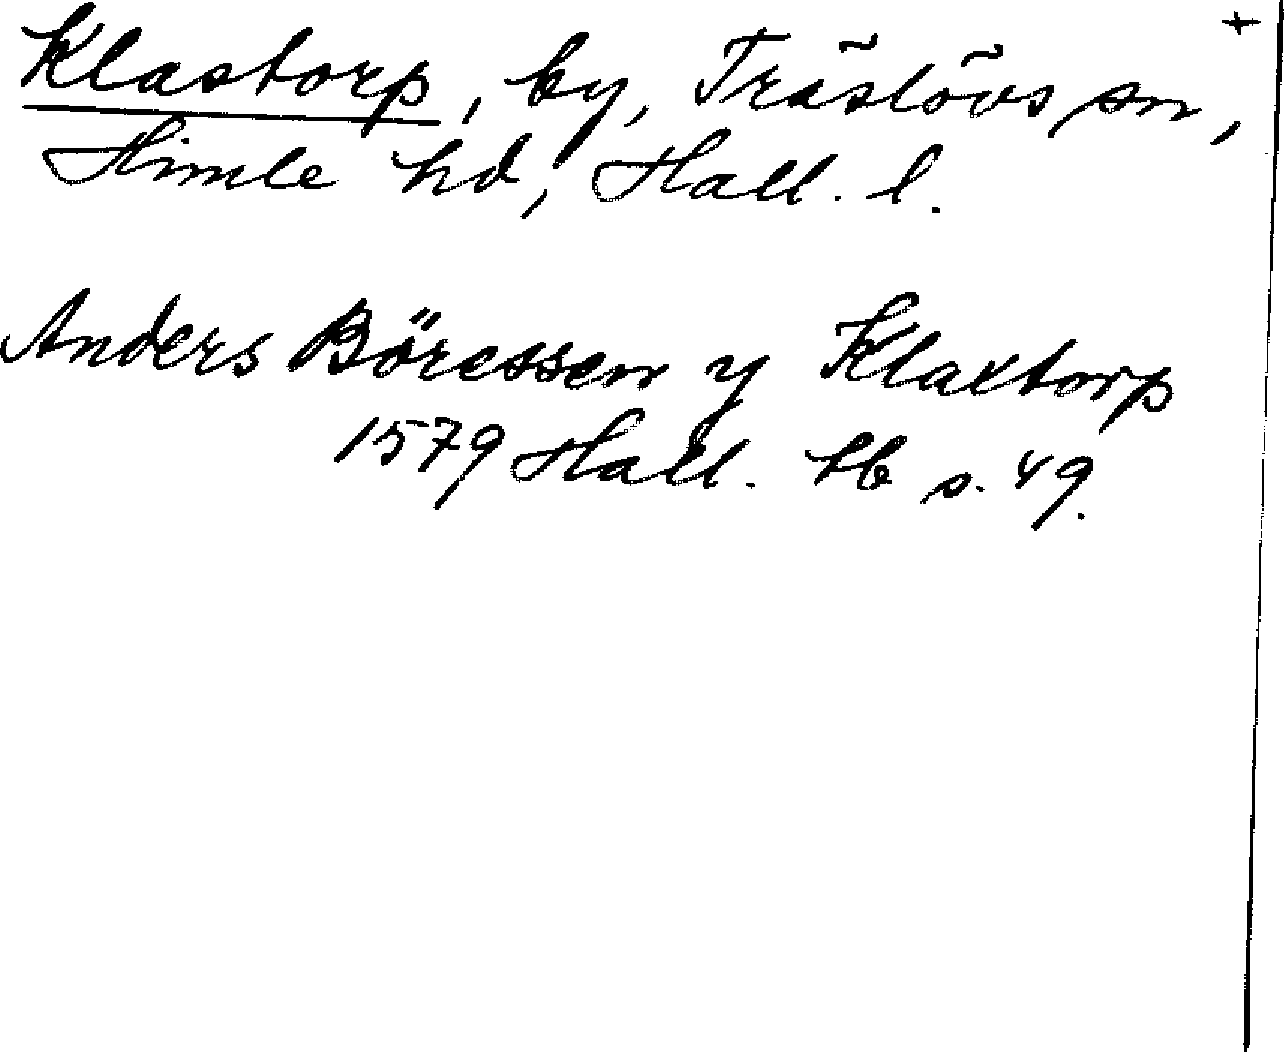 +
Klastorp, by, Träslövs sn,
Himle hd, Hall. l.
Anders Böressen y Klaxtorp
1579 Hall. hb s. 49.